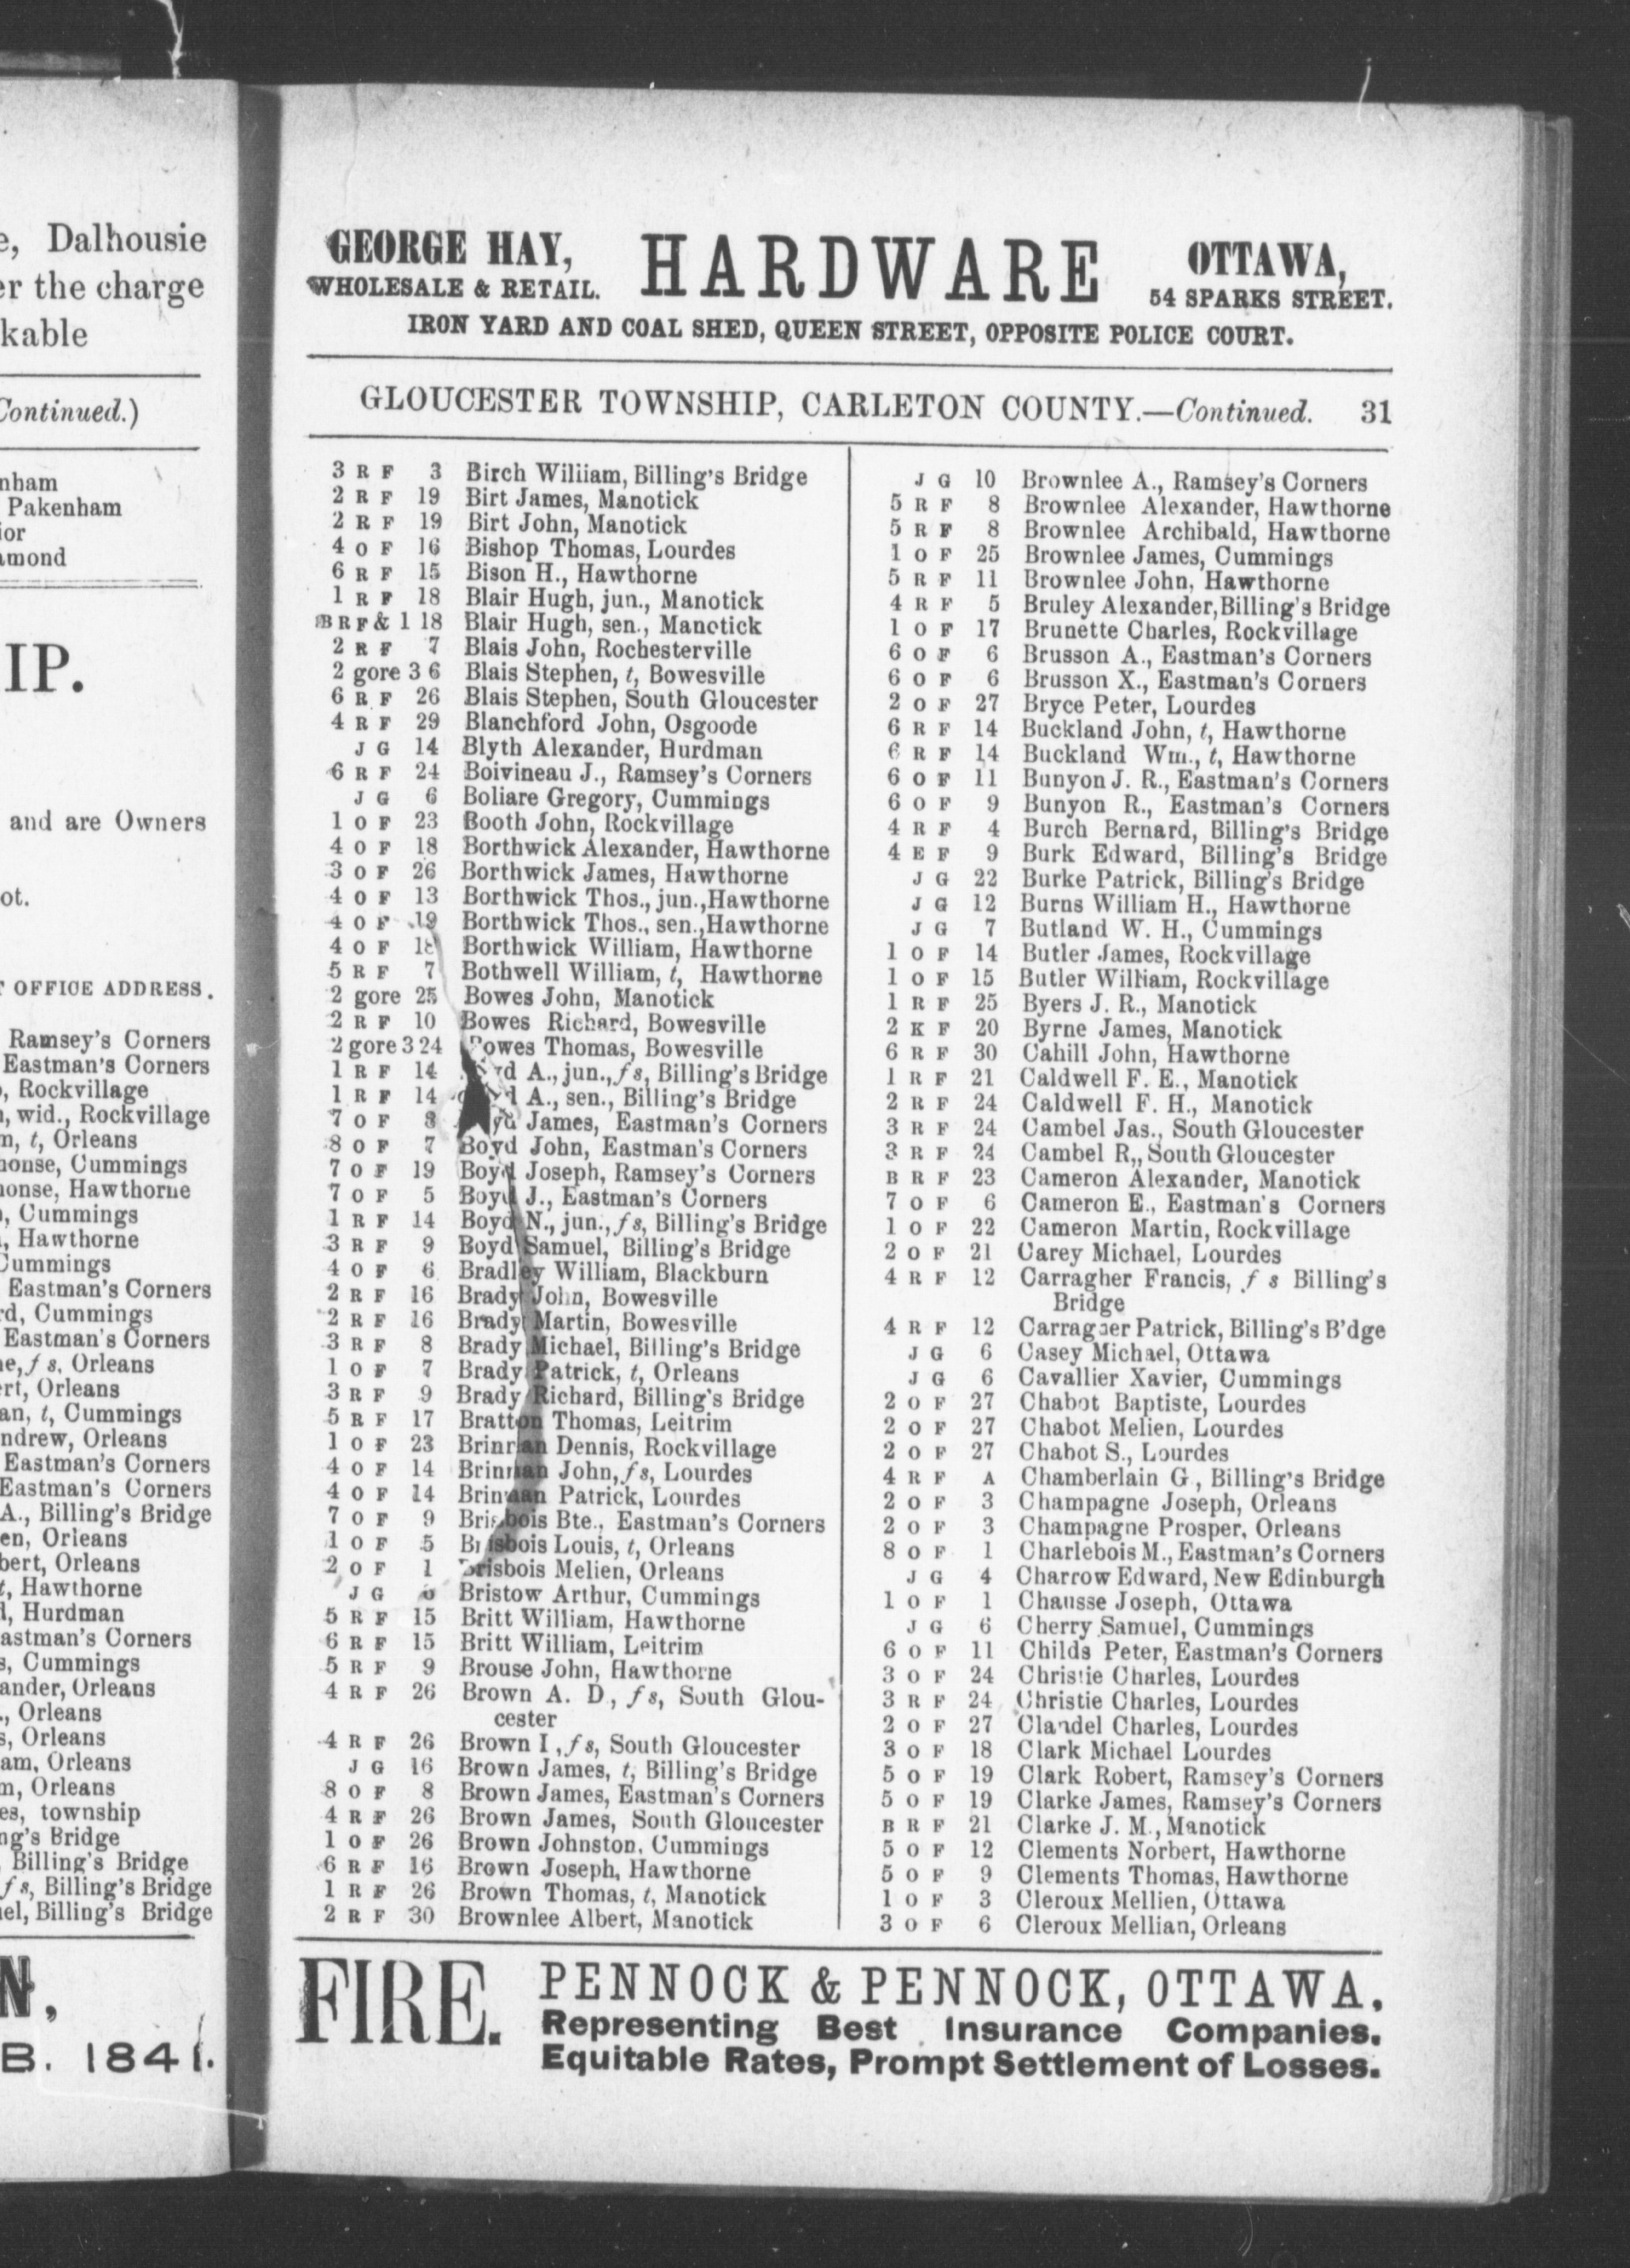 e, Dalhousie
er the charge
kable
Continued.)
nham
Pakenham
ior
amond
IP.
and are Owners
ot.
T OFFICE ADDRESS.
Ramsey's Corners
Eastman's Corners
, Rockville
, wid., Rockvillage
n, t, Orleans
house, Cummings
honse, Hawthorne
, Cummings
, Hawthorne
Cummings
Eastman's Corners
rd, Cummings
Eastman's Corners
ne, f s, Orleans
ert, Orleans
an, t, Cummings
ndrew, Orleans
Eastman's Corners
Eastman's Corners
A., Billing's Bridge
en, Orleans
bert, Orleans
t, Hawthorne
d, Hurdman
astman's Corners
s, Cummings
ander, Orleans
., Orleans
s, Orleans
am, Orleans
n, Orleans
es, township
ng's Bridge
, Billing's Bridge
f s, Billing's Bridge
el, Billing's Bridge
N,
B. 1841.
GEORGE HAY, HARDWARE OTTAWA,
WHOLESALE & RETAIL. 54 SPARKS STREET.
IRON YARD AND COAL SHED, QUEEN STREET, OPPOSITE POLICE COURT.
GLOUCESTER TOWNSHIP, CARLETON COUNTY.—Continued. 31
3 R F 3 Birch Wiliiam, Billing's Bridge
2 R F 19 Birt James, Manotick
2 R F 19 Birt John, Manotick
4 O F 16 Bishop Thomas, Lourdes
6 R F 15 Bison H., Hawthorne
1 R F 18 Blair Hugh, jun., Manotick
B R F & 1 18 Blair Hugh, sen., Manotick
2 R F 7 Blais John, Rochesterville
2 gore 3 6 Blais Stephen, t, Bowesville
6 R F 26 Blais Stephen, South Gloucester
4 R F 29 Blanchford John, Osgoode
J G 14 Blyth Alexander, Hurdman
6 R F 24 Boivineau J., Ramsey's Corners
J G 6 Boliare Gregory, Cummings
1 O F 23 Booth John, Rockvillage
4 O F 18 Borthwick Alexander, Hawthorne
3 O F 26 Borthwick James, Hawthorne
4 O F 13 Borthwick Thos., jun., Hawthorne
4 O F 19 Borthwick Thos., sen., Hawthorne
4 O F 18 Borthwick William, Hawthorne
5 R F 7 Bothwell William, t, Hawthorne
2 gore 25 Bowes John, Manotick
2 R F 10 Bowes Richard, Bowesville
2 gore 3 24 Bowes Thomas, Bowesville
1 R F 14 A., jun., f s, Billing's Bridge
1 R F 14 A., sen., Billing's Bridge
7 O F 8 James, Eastman's Corners
8 O F 7 Boyd John, Eastman's Corners
7 O F 19 Boyd Joseph, Ramsey's Corners
7 O F 5 Boyd J., Eastman's Corners
1 R F 14 Boyd N., jun., f s, Billing's Bridge
3 R F 9 Boyd Samuel, Billing's Bridge
4 O F 6 Bradley William, Blackburn
2 R F 16 Brady John, Bowesville
2 R F 16 Brady Martin, Bowesville
3 R F 8 Brady Michael, Billing's Bridge
1 O F 7 Brady Patrick, t, Orleans
3 R F 9 Brady Richard, Billing's Bridge
5 R F 17 Bratton Thomas, Leitrim
1 O F 23 Brinnan Dennis, Rockvillage
4 O F 14 Brinnan John, f s, Lourdes
4 O F 14 Brinnan Patrick, Lourdes
7 O F 9 Brisbois Bte., Eastman's Corners
1 O F 5 Brisbois Louis, t, Orleans
2 O F 1 Brisbois Melien, Orleans
J G 6 Bristow Arthur, Cummings
5 R F 15 Britt William, Hawthorne
6 R F 15 Britt William, Leitrim
5 R F 9 Brouse John, Hawthorne
4 R F 26 Brown A. D., f s, South Glou-
cester
4 R F 26 Brown I, f s, South Gloucester
J G 16 Brown James, t, Billing's Bridge
8 O F 8 Brown James, Eastman's Corners
4 R F 26 Brown James, South Gloucester
1 O F 26 Brown Johnston, Cummings
6 R F 16 Brown Joseph, Hawthorne
1 R F 26 Brown Thomas, t, Manotick
2 R F 30 Brownlee Albert, Manotick
J G 10 Brownlee A., Ramsey's Corners
5 R F 8 Brownlee Alexander, Hawthorne
5 R F 8 Brownlee Archibald, Hawthorne
1 O F 25 Brownlee James, Cummings
5 R F 11 Brownlee John, Hawthorne
4 R F 5 Bruley Alexander, Billing's Bridge
1 O F 17 Brunette Charles, Rockvillage
6 O F 6 Brusson A., Eastman's Corners
6 O F 6 Brusson X., Eastman's Corners
2 O F 27 Bryce Peter, Lourdes
6 R F 14 Buckland John, t, Hawthorne
6 R F 14 Buckland Wm., t, Hawthorne
6 O F 11 Bunyon J. R., Eastman's Corners
6 O F 9 Bunyon R., Eastman's Corners
4 R F 4 Burch Bernard, Billing's Bridge
4 E F 9 Burk Edward, Billing's Bridge
J G 22 Burke Patrick, Billing's Bridge
J G 12 Burns William H., Hawthorne
J G 7 Butland W. H., Cummings
1 O F 14 Butler James, Rockvillage
1 O F 15 Butler William, Rockvillage
1 R F 25 Byers J. R., Manotick
2 K F 20 Byrne James, Manotick
6 R F 30 Cahill John, Hawthorne
1 R F 21 Caldwell F. E., Manotick
2 R F 24 Caldwell F. H., Manotick
3 R F 24 Cambel Jas., South Gloucester
3 R F 24 Cambel R,, South Gloucester
B R F 23 Cameron Alexander, Manotick
7 O F 6 Cameron E., Eastman's Corners
1 O F 22 Cameron Martin, Rockvillage
2 O F 21 Carey Michael, Lourdes
4 R F 12 Carragher Francis, f s Billing's
Bridge
4 R F 12 Carragher Patrick, Billing's B'dge
J G 6 Casey Michael, Ottawa
J G 6 Cavallier Xavier, Cummings
2 O F 27 Chabot Baptiste, Lourdes
2 O F 27 Chabot Melien, Lourdes
2 O F 27 Chabot S., Lourdes
4 R F A Chamberlain G, Billing's Bridge
2 O F 3 Champagne Joseph, Orleans
2 O F 3 Champagne Prosper, Orleans
8 O F 1 Charlebois M., Eastman's Corners
J G 4 Charrow Edward, New Edinburgh
1 O F 1 Chausse Joseph, Ottawa
J G 6 Cherry Samuel, Cummings
6 O F 11 Childs Peter, Eastman's Corners
3 O F 24 Christie Charles, Lourdes
3 R F 24 Christie Charles, Lourdes
2 O F 27 Clandel Charles, Lourdes
3 O F 18 Clark Michael Lourdes
5 O F 19 Clark Robert, Ramsey's Corners
5 O F 19 Clarke James, Ramsey's Corners
B R F 21 Clarke J. M., Manotick
5 O F 12 Clements Norbert, Hawthorne
5 O F 9 Clements Thomas, Hawthorne
1 O F 3 Cleroux Mellien, Ottawa
3 O F 6 Cleroux Mellian, Orleans
FIRE. PENNOCK & PENNOCK, OTTAWA,
Representing Best Insurance Companies.
Equitable Rates, Prompt Settlement of Losses.